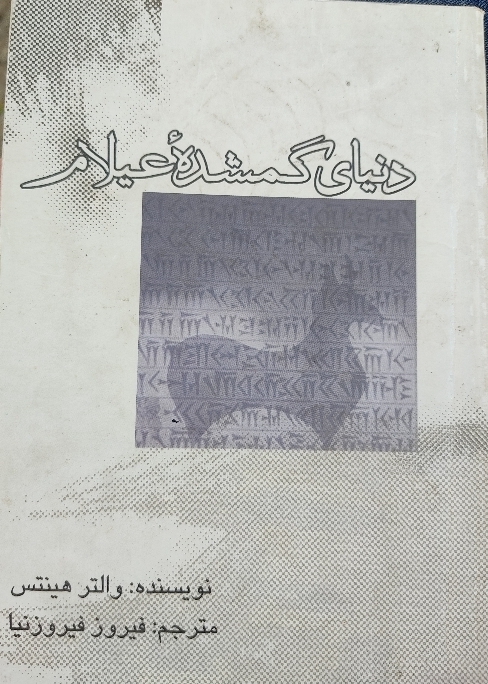 دنیای گمشدهٔ عیلام
نویسنده: والتر هینتس
مترجم: فیروز فیروزنیا